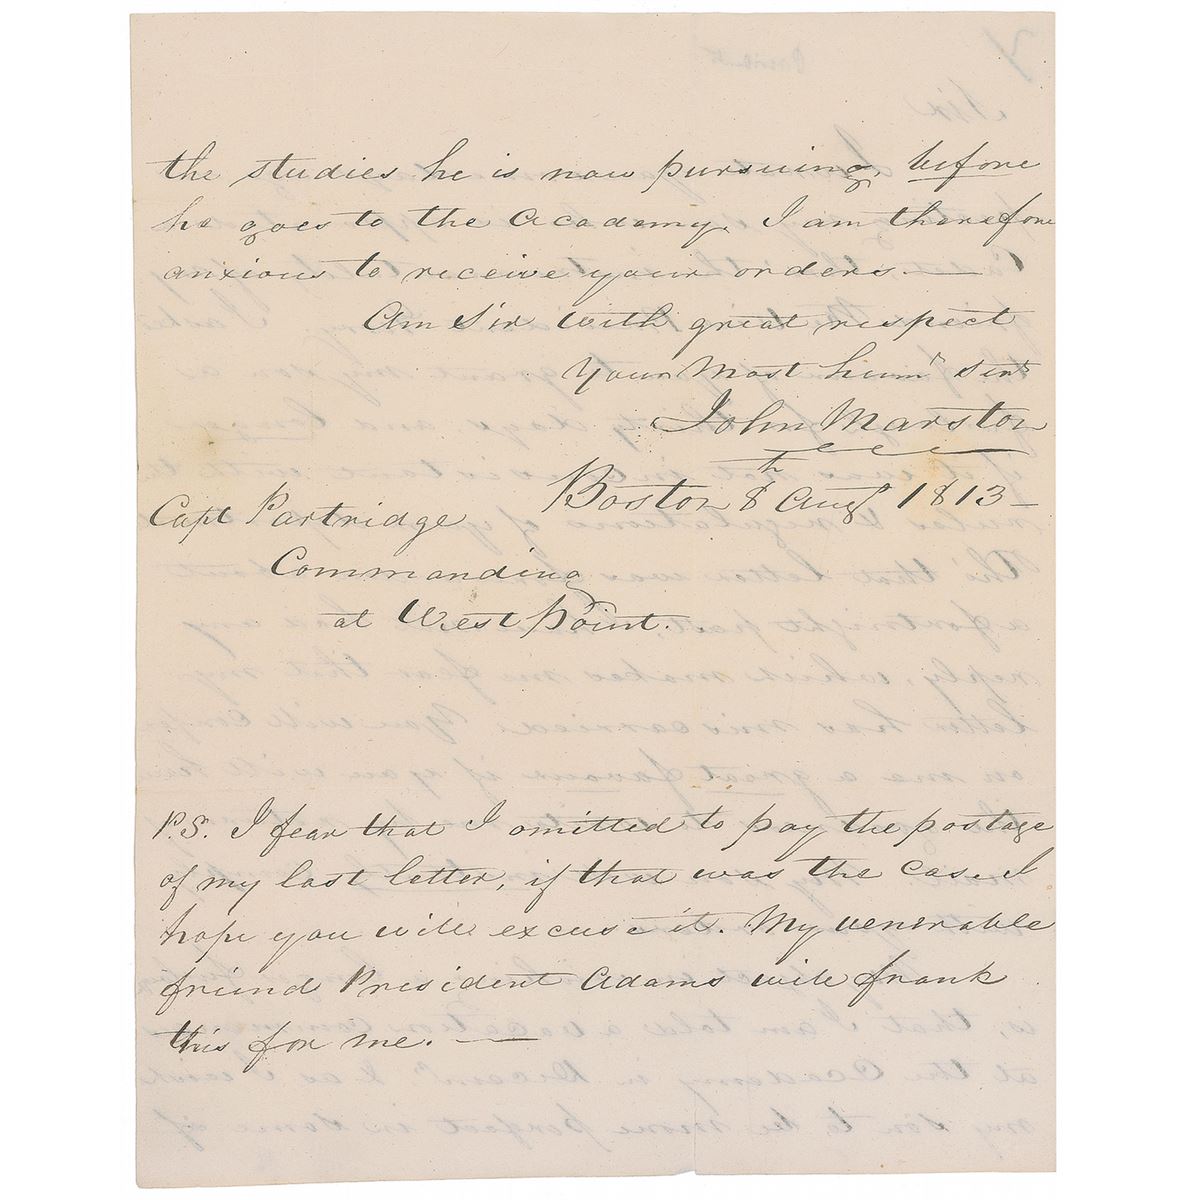 the studies he is now pursuing, before
he goes to the Academy, I am therefore
anxious to receive your orders. —
Am Sir with great respect
Your Most hum<sup>e</sup> Servt
John Marston
Boston 8th Augt 1813 —
Capt Partridge
Commanding
at West Point.
P.S. I fear that I omitted to pay the postage
of my last letter, if that was the case, I
hope you will excuse it. My venerable
friend President Adams will frank
this for me. —